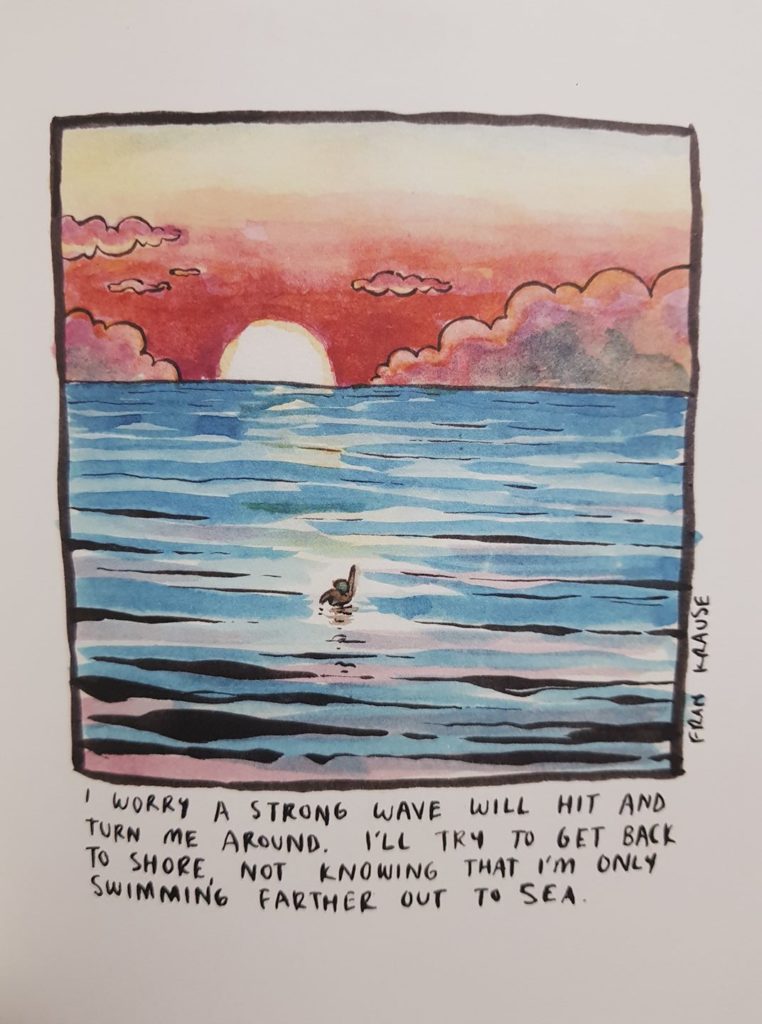 I WORRY A STRONG WAVE WILL HIT AND
TURN ME AROUND. I'LL TRY TO GET BACK
TO SHORE, NOT KNOWING THAT I'M ONLY
SWIMMING FARTHER OUT TO SEA.
FRAN KRAUSE